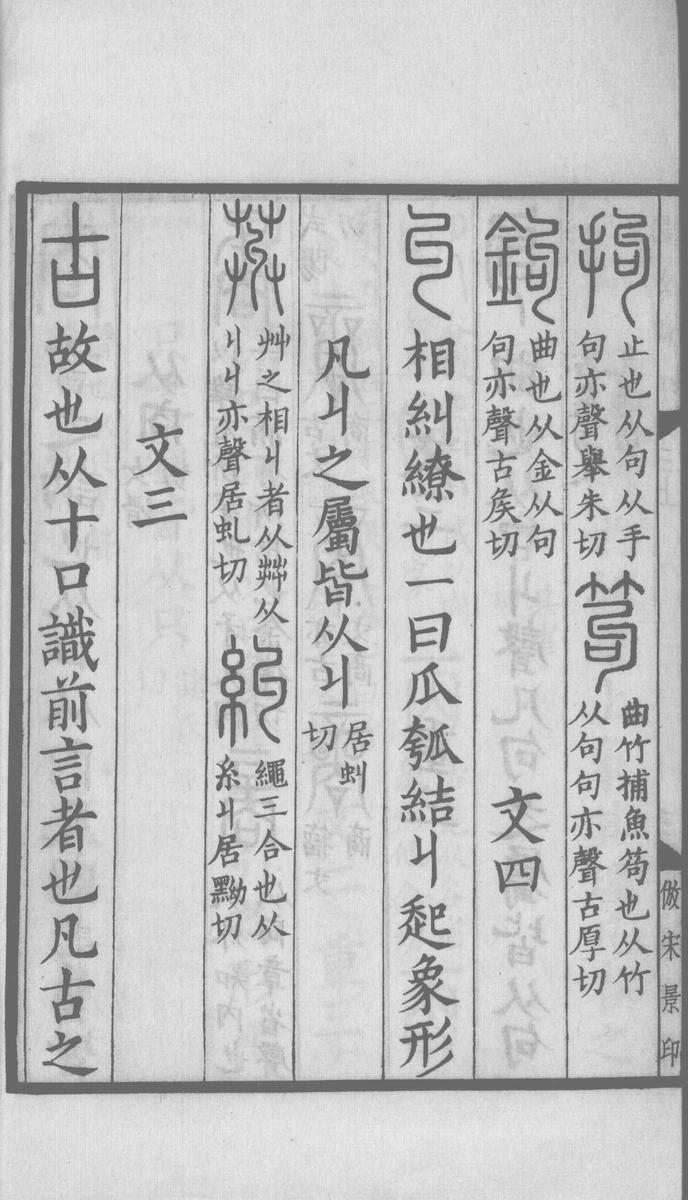 拘止也从句从手句亦聲舉朱切笱曲竹捕魚笱也从竹从句句亦聲古厚切
鉤曲也从金从句句亦聲古矦切 文四
丩相糾繚也一曰瓜瓠結丩起象形
凡丩之屬皆从丩居虯切
茻艸之相丩者从茻从丩丩亦聲居虬切糾繩三合也从糸丩居黝切
文三
古故也从十口識前言者也凡古之
倣宋景印